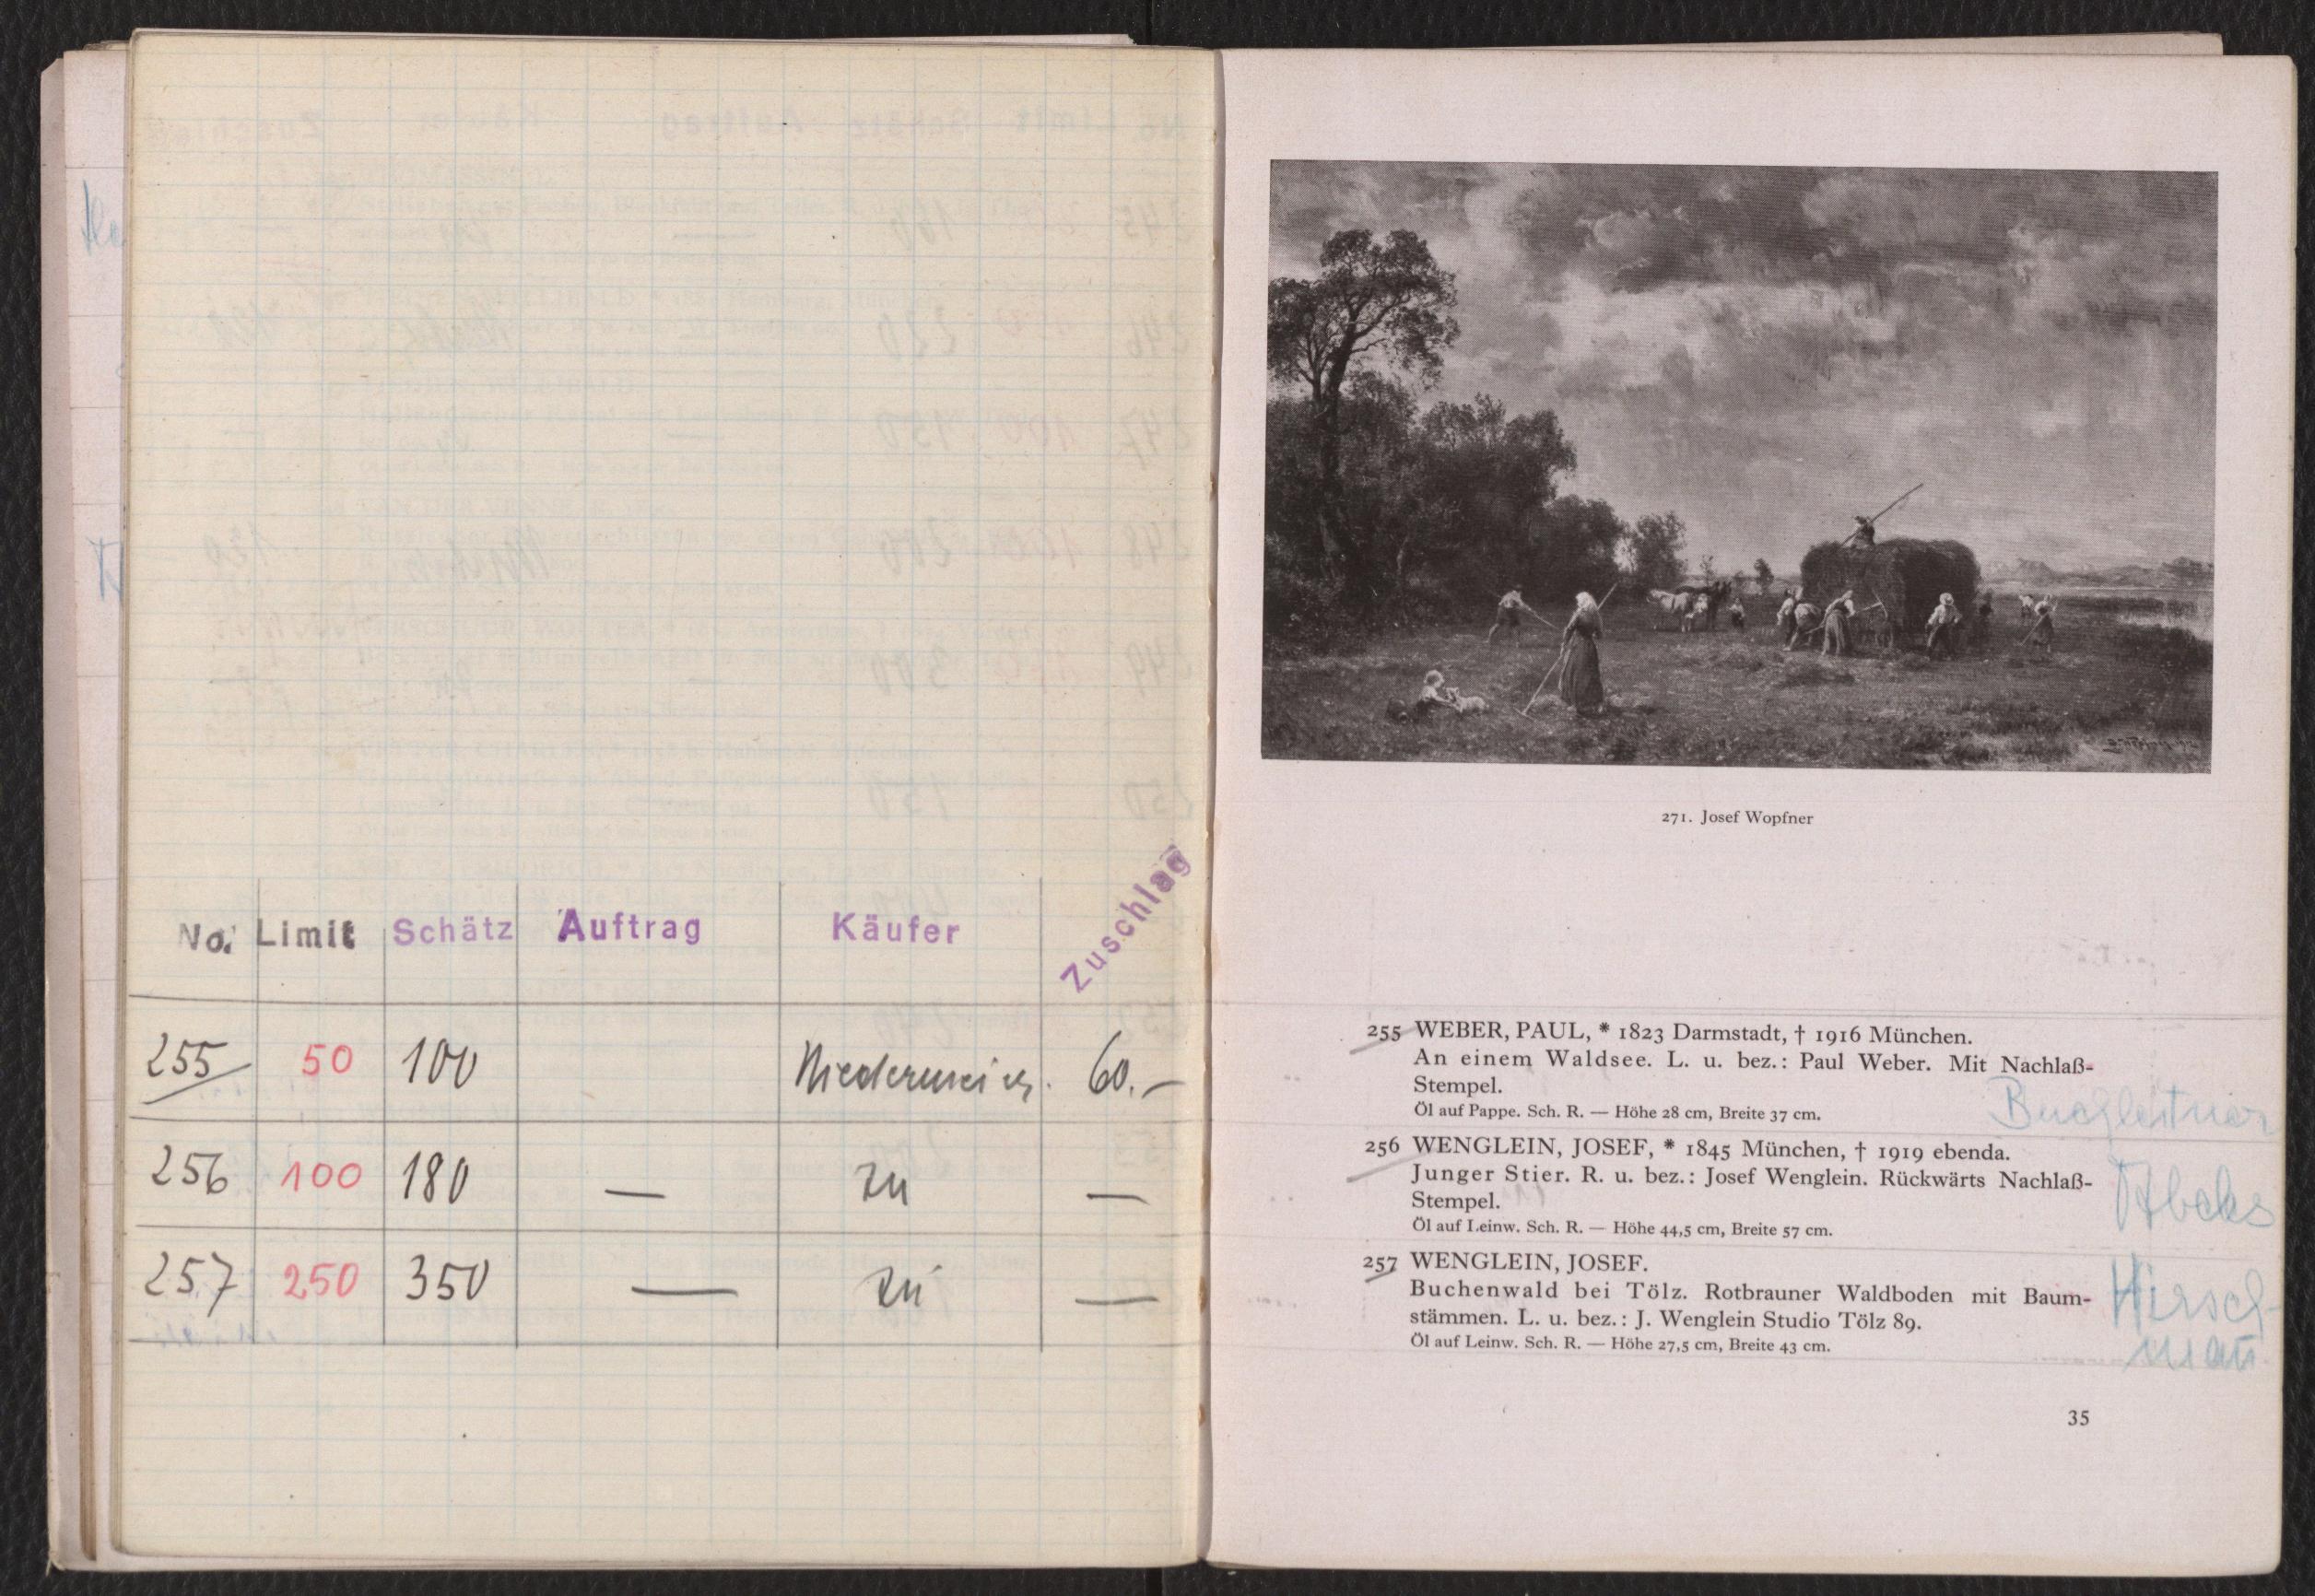 No. Limit Schätz Auftrag Käufer Zuschlag
255 50 100 60.-
256 100 180 — zu —
257 250 350 — zu —
271. Josef Wopfner
255 WEBER, PAUL, * 1823 Darmstadt, † 1916 München.
An einem Waldsee. L. u. bez.: Paul Weber. Mit Nachlaß-
Stempel.
Öl auf Pappe. Sch. R. — Höhe 28 cm, Breite 37 cm.
Buchleitner
256 WENGLEIN, JOSEF, * 1845 München, † 1919 ebenda.
Junger Stier. R. u. bez.: Josef Wenglein. Rückwärts Nachlaß-
Stempel.
Öl auf Leinw. Sch. R. — Höhe 44,5 cm, Breite 57 cm.
257 WENGLEIN, JOSEF.
Buchenwald bei Tölz. Rotbrauner Waldboden mit Baum-
stämmen. L. u. bez.: J. Wenglein Studio Tölz 89.
Öl auf Leinw. Sch. R. — Höhe 27,5 cm, Breite 43 cm.
Hirsch-
man
35